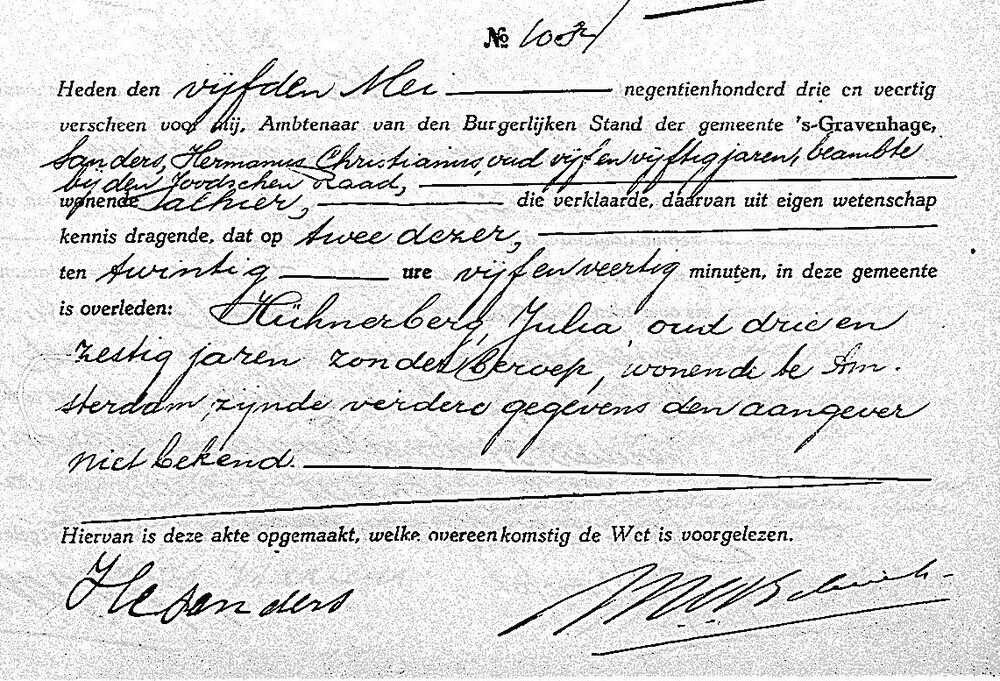 № 1032
Heden den vijfden Mei negentienhonderd drie en veertig
verscheen voor mij, Ambtenaar van den Burgerlijken Stand der gemeente 's-Gravenhage,
Sanders, Hermanus Christianus, oud vijf en vijftig jaren, beambte
bij den Joodschen Raad,
wonende alhier, die verklaarde, daarvan uit eigen wetenschap
kennis dragende, dat op twee dezer,
ten twintig ure vijf en veertig minuten, in deze gemeente
is overleden: Hühnerberg, Julia, oud drie en
zestig jaren zonder beroep, wonende te Am-
sterdam, zijnde verdere gegevens den aangever
niet bekend.
Hiervan is deze akte opgemaakt, welke overeenkomstig de Wet is voorgelezen.
HCSanders